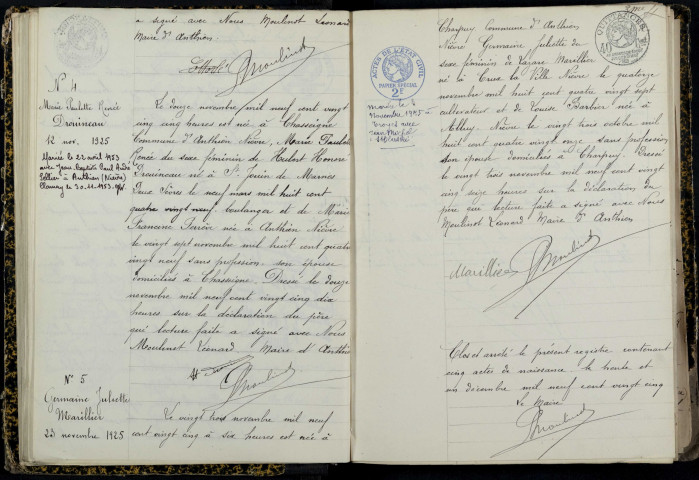 a signé avec Nous Moulinot Léonard
Maire d'Anthien.
Moulinot
N° 4
Marie Paulette Renée
Drouineau
12 nov. 1925
Mariée le 22 avril 1953
avec Jean Baptiste Paul
à Anthien (Nièvre)
le 30.11.1953
Le douze novembre mil neuf cent vingt
cinq cinq heures est née à Chasseigne
Commune d'Anthien Nièvre, Marie Paulette
Renée du sexe féminin de Herbert Honoré
Drouineau né à St Jouin de Marnes
Deux Sèvres le neuf mars mil huit cent
quatre vingt neuf, boulanger et de Marie
Francine née à Anthien Nièvre
le vingt sept novembre mil huit cent quatre
vingt neuf sans profession son épouse
domiciliés à Chasseigne. Dressé le douze
novembre mil neuf cent vingt cinq dix
heures sur la déclaration du père
qui lecture faite a signé avec Nous
Moulinot Léonard Maire d'Anthien
Moulinot
N° 5
Germaine Juliette
Marillier
23 novembre 1925
Le vingt trois novembre mil neuf
cent vingt cinq à six heures est née à
ACTES DE L'ETAT CIVIL
PAPIER SPECIAL
2F
QUITTANCES
novembre 1945 à
avec
Charpuy Commune d'Anthien
Nièvre Germaine Juliette du
sexe féminin de Lazare Marillier
né à Crux la Ville Nièvre le quatorze
novembre mil huit cent quatre vingt sept
cultivateur et de Louise Barbier née à
Nièvre le vingt trois octobre mil
huit cent quatre vingt onze sans profession
son épouse domiciliés à Charpuy. Dressé
le vingt trois novembre mil neuf cent vingt
cinq seize heures sur la déclaration du
père qui lecture faite a signé avec Nous
Moulinot Léonard Maire d'Anthien
Marillier Moulinot
Clos et arrêté le présent registre contenant
cinq actes de naissance le trente et
un décembre mil neuf cent vingt cinq
Le Maire
Moulinot